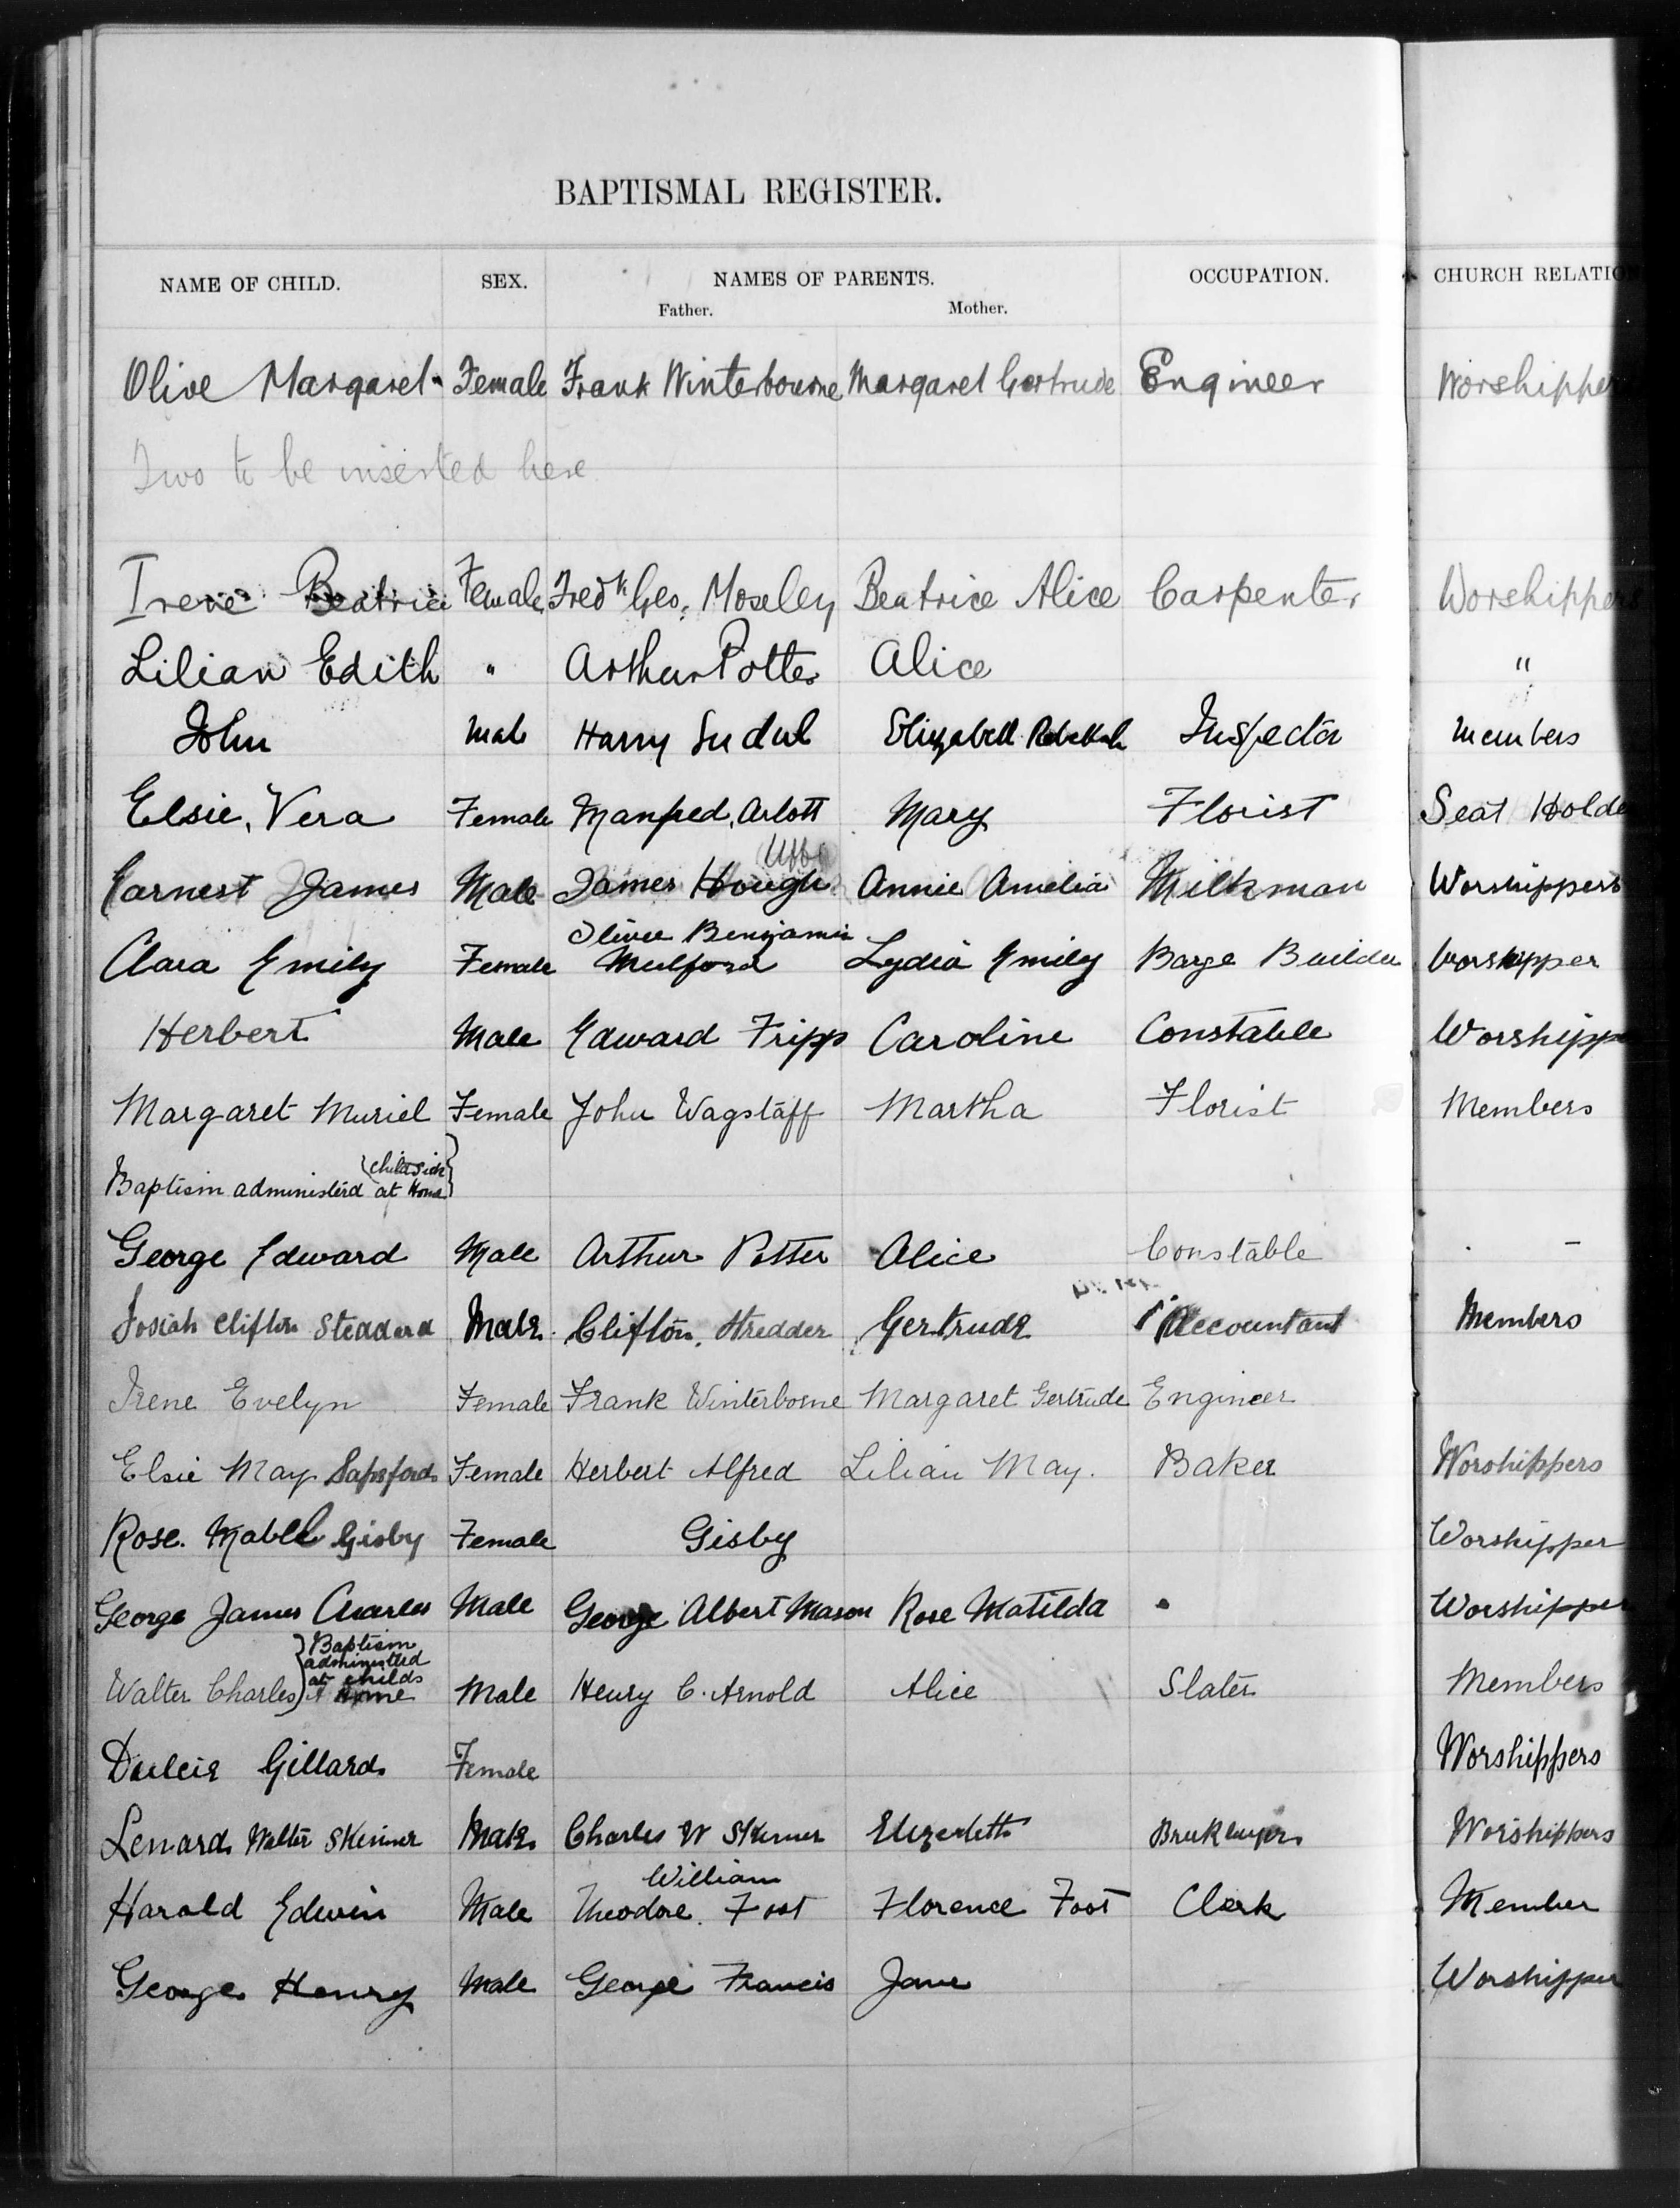 BAPTISMAL REGISTER.
NAME OF CHILD. SEX. NAMES OF PARENTS. OCCUPATION. CHURCH RELATIO
Father. Mother.
Olive Margaret Female Frank Winterbourne Margaret Gertrude Engineer Worshipper
Two to be inserted here
Irene Beatrice Female Fredk Geo. Moseley Beatrice Alice Carpenter Worshippers
Lilian Edith " Arthur Potter Alice "
John Male Harry Elizabeth Rebekah Inspector Members
Elsie, Vera Female Manfred, Arlott Mary Florist Seat Holde
Earnest James Male James Hough Annie Amelia Milkman Worshippers
Oliver Benjamin
Clara Emily Female Mulford Lydia Emily Barge Builder Worshipper
Herbert Male Edward Fripp Caroline Constable Worshipp
Margaret Muriel Female John Wagstaff Martha Florist Members
{child sick}
Baptism administerd at Home
George Edward Male Arthur Potter Alice Constable . -
Josiah Clifton Male. Clifton, Stredder Gertrude Accountant Members
Irene Evelyn Female Frank Winterborne Margaret Gertrude Engineer
Elsie May Sapsford Female Herbert Alfred Lilian May. Baker Worshippers
Rose. Mabel Gisby Female Gisby Worshipper
George James Charles Male George Albert Mason Rose Matilda Worshipper
Baptism
administed
at childs
Walter Charles Home Male Henry C. Arnold Alice Slater Members
Dulcie Gillard Female Worshippers
Lenard Walter Skinner Male Charles W Skinner Elizabeth Worshippers
William
Harold Edwin Male Theodore. Foot Florence Foot Clerk Member
George Henry Male George Francis Jane Worshipper